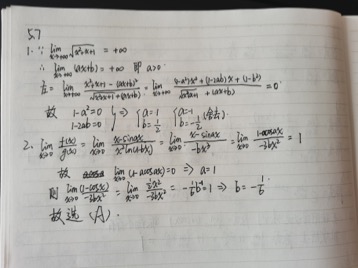 5.7
1. ∵ lim_{x→+∞} √(x²+x+1) = +∞
∴ lim_{x→+∞} (ax+b) = +∞ 即 a>0
左 = lim_{x→+∞} (x²+x+1-(ax+b)²)/(√(x²+x+1)+(ax+b)) = lim_{x→+∞} ((1-a²)x²+(1-2ab)x+(1-b²))/(√(x²+x+1)+(ax+b)) = 0
故 {1-a²=0 1-2ab=0} ⇒ {a=1 b=1/2 {a=-1 b=-1/2 (舍去)
2. lim_{x→0} f(x)/g(x) = lim_{x→0} (x-sinax)/(x²ln(1-bx)) = lim_{x→0} (x-sinax)/(-bx³) = lim_{x→0} (1-acosax)/(-3bx²) = 1
故 lim_{x→0} (1-acosax)=0 ⇒ a=1
则 lim_{x→0} (1-cosx)/(-3bx²) = lim_{x→0} (½x²)/(-3bx²) = -1/6 b⁻¹=1 ⇒ b=-1/6
故选 (A).